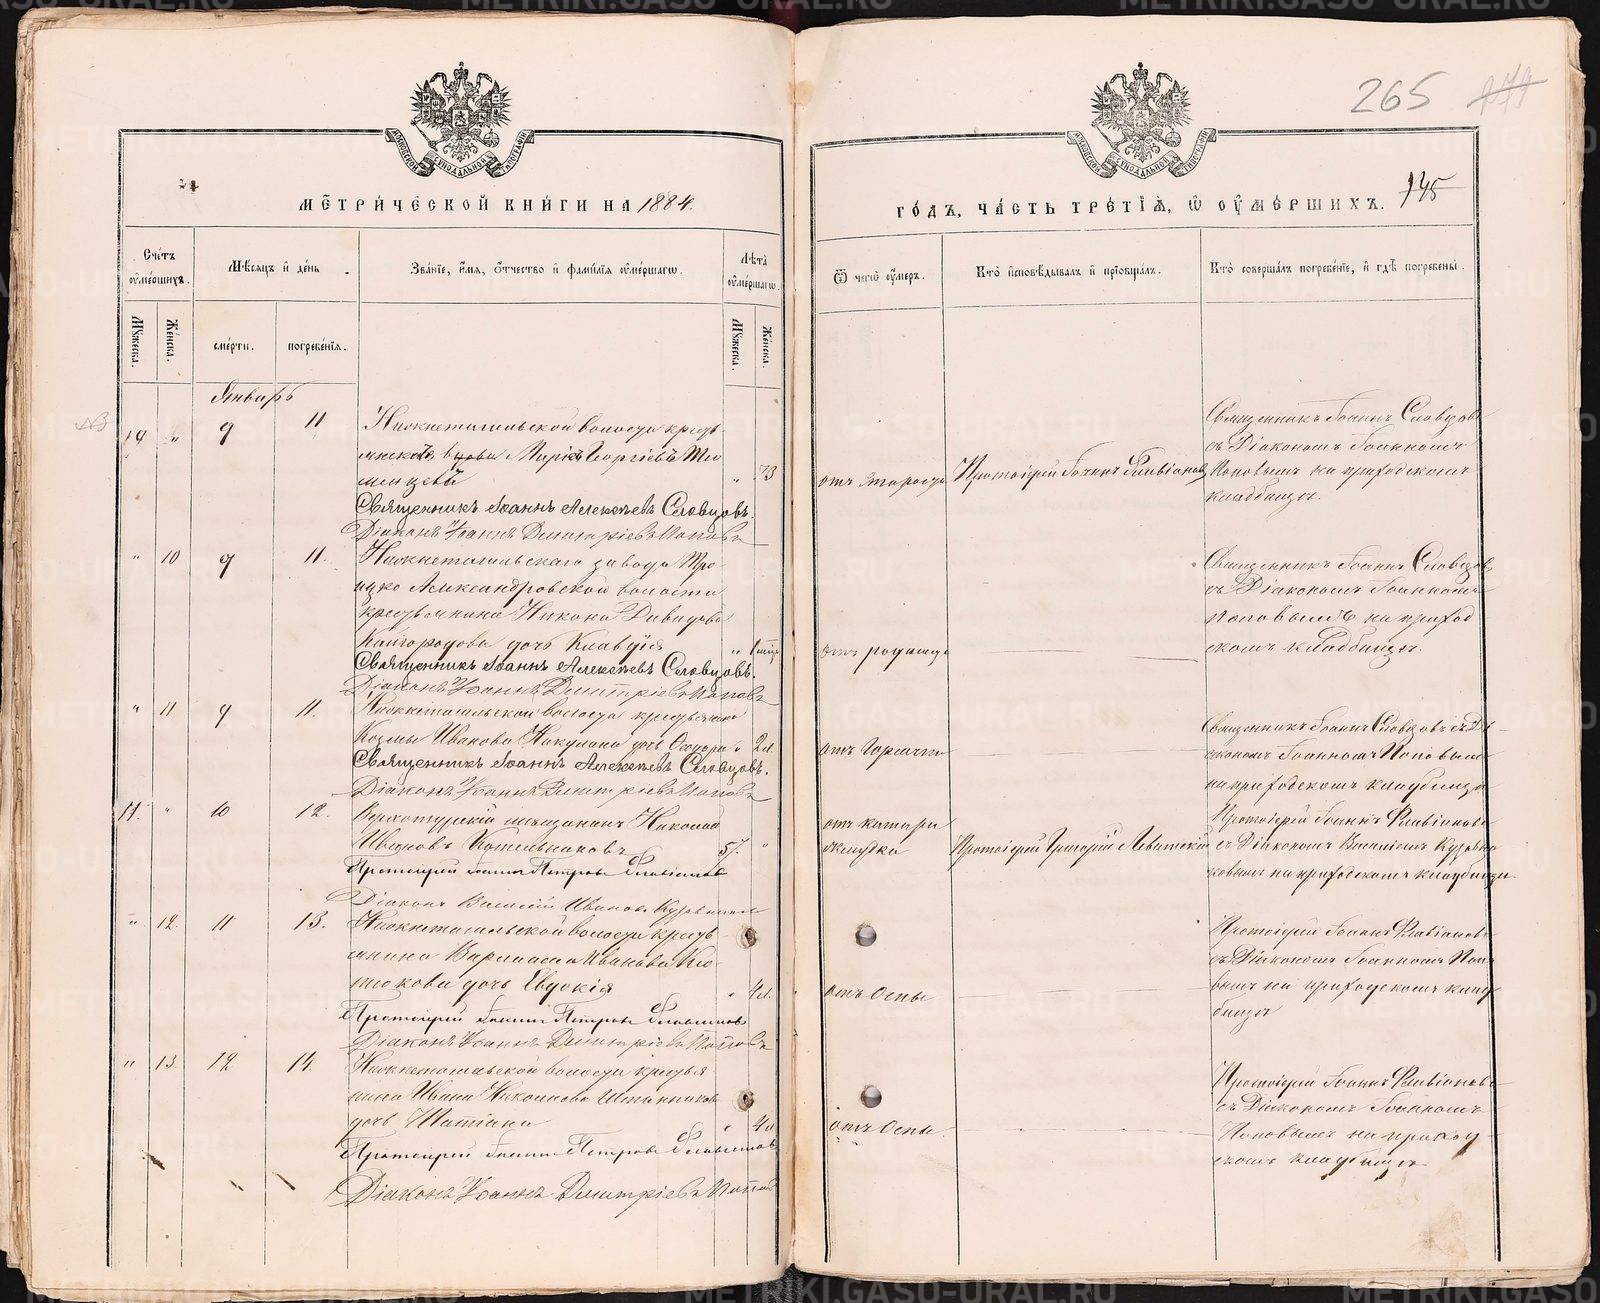 265
145
МЕТРИЧЕСКОЙ КНИГИ НА 1884.
ГОДЪ, ЧАСТЬ ТРЕТІЯ, Ѿ ОУМЕРШИХЪ.
Счетъ оумершихъ.
Мѣсяцъ и день
Званіе, имя, отчество и фамилія оумершагѡ.
Лѣта оумершагѡ.
Ѿ чегѡ оумеръ.
Кто исповѣдывалъ и пріобщалъ.
Кто совершалъ погребеніе, и гдѣ погребены.
Мѫжеска.
Женска.
смерти.
погребенія.
Мѫжеска.
Женска.
Январь
9 11 Нижнетагильской волости кресть-
вдова Марія Георгіева
73
отъ старости
Протоіерей Іоаннъ Флавіановъ
Священникъ Іоаннъ Словцовъ
съ Діакономъ Іоанномъ
Поповымъ на приходскомъ
кладбищѣ.
Священникъ Іоаннъ Алексѣевъ Словцовъ.
Діаконъ Іоаннъ Димитріевъ Поповъ
" 10 9 11. Нижнетагильскаго завода Тро-
ицко Александровской волости
крестьянина Никона Давидова
Кайгородова дочь Клавдія
отъ родимца
Священникъ Іоаннъ Словцовъ
съ Діакономъ Іоанномъ
Поповымъ на приход
скомъ кладбищѣ.
Священникъ Іоаннъ Алексѣевъ Словцовъ.
Діаконъ Іоаннъ Димитріевъ Поповъ
" 11 9 11. Нижнетагильской волости крестьянина
Козмы Иванова дочь 2 л.
отъ горячки
Священникъ Іоаннъ Словцовъ съ Ді-
акономъ Іоанномъ Поповымъ
на приходскомъ кладбищѣ
Священникъ Іоаннъ Алексѣевъ Словцовъ.
Діаконъ Іоаннъ Димитріевъ Поповъ
11. " 10 12. Верхотурскій мѣщанинъ Николай
Ивановъ Котельниковъ 57. "
отъ катара
желудка
Протоіерей Григорій Левитскій
Протоіерей Іоаннъ Флавіановъ
съ Діакономъ Василіемъ
на приходскомъ кладбищѣ
Протоіерей Іоаннъ Петровъ Флавіановъ
Діаконъ Василій Ивановъ
" 12. 11 13. Нижнетагильской волости кресть
янина Варлаама Иванова
дочь Евдокія
" 4 л.
отъ Оспы
Протоіерей Іоаннъ Флавіановъ
съ Діакономъ Іоанномъ Попо-
вымъ на приходскомъ клад
бищѣ
Протоіерей Іоаннъ Петровъ Флавіановъ
Діаконъ Іоаннъ Димитріевъ Поповъ
" 13 12 14. Нижнетагильской волости крестья
нина Ивана Николаева
дочь Татіана
отъ Оспы
Протоіерей Іоаннъ Флавіановъ
съ Діакономъ Іоанномъ
Поповымъ на приход
скомъ кладбищѣ
Протоіерей Іоаннъ Петровъ Флавіановъ
Діаконъ Іоаннъ Димитріевъ Поповъ
METRIKI.GASO-URAL.RU